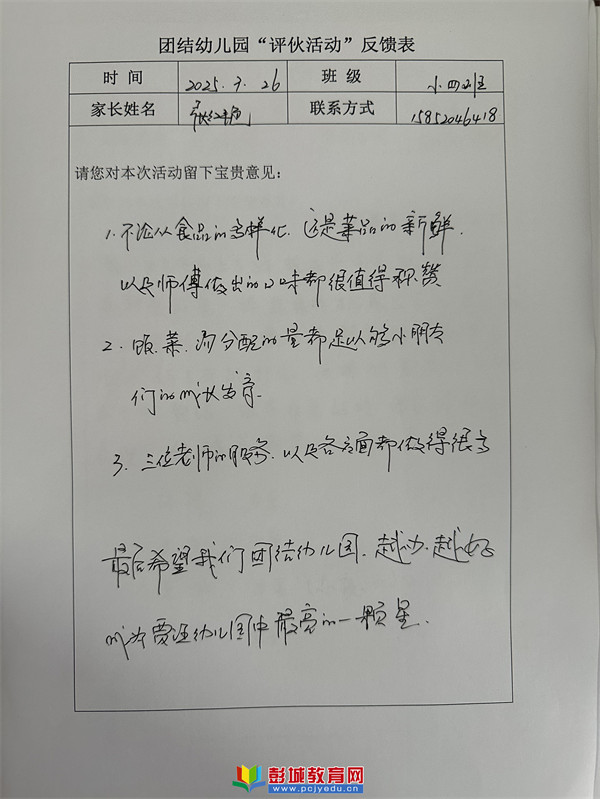 团结幼儿园“评伙活动”反馈表
时 间 2025.3.26 班 级 小四班
家长姓名 联系方式 15852046418
请您对本次活动留下宝贵意见:
1.不论从食品的多样化.这是菜品的新鲜.
以及师傅做出的口味都很值得称赞
2.饭.菜.汤分配的量都足以够小朋友
们的成长发育.
3.三位老师的服务.以及各方面都做得很多
最后希望我们团结幼儿园.越办.越好
成为贾汪幼儿园中最亮的一颗星.
彭城教育网
www.pcjyedu.cn